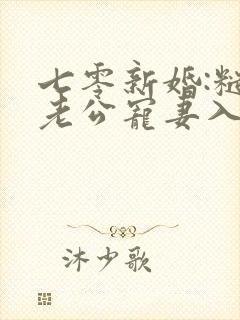 七零新婚:糙
老公宠妻入
沐少歌